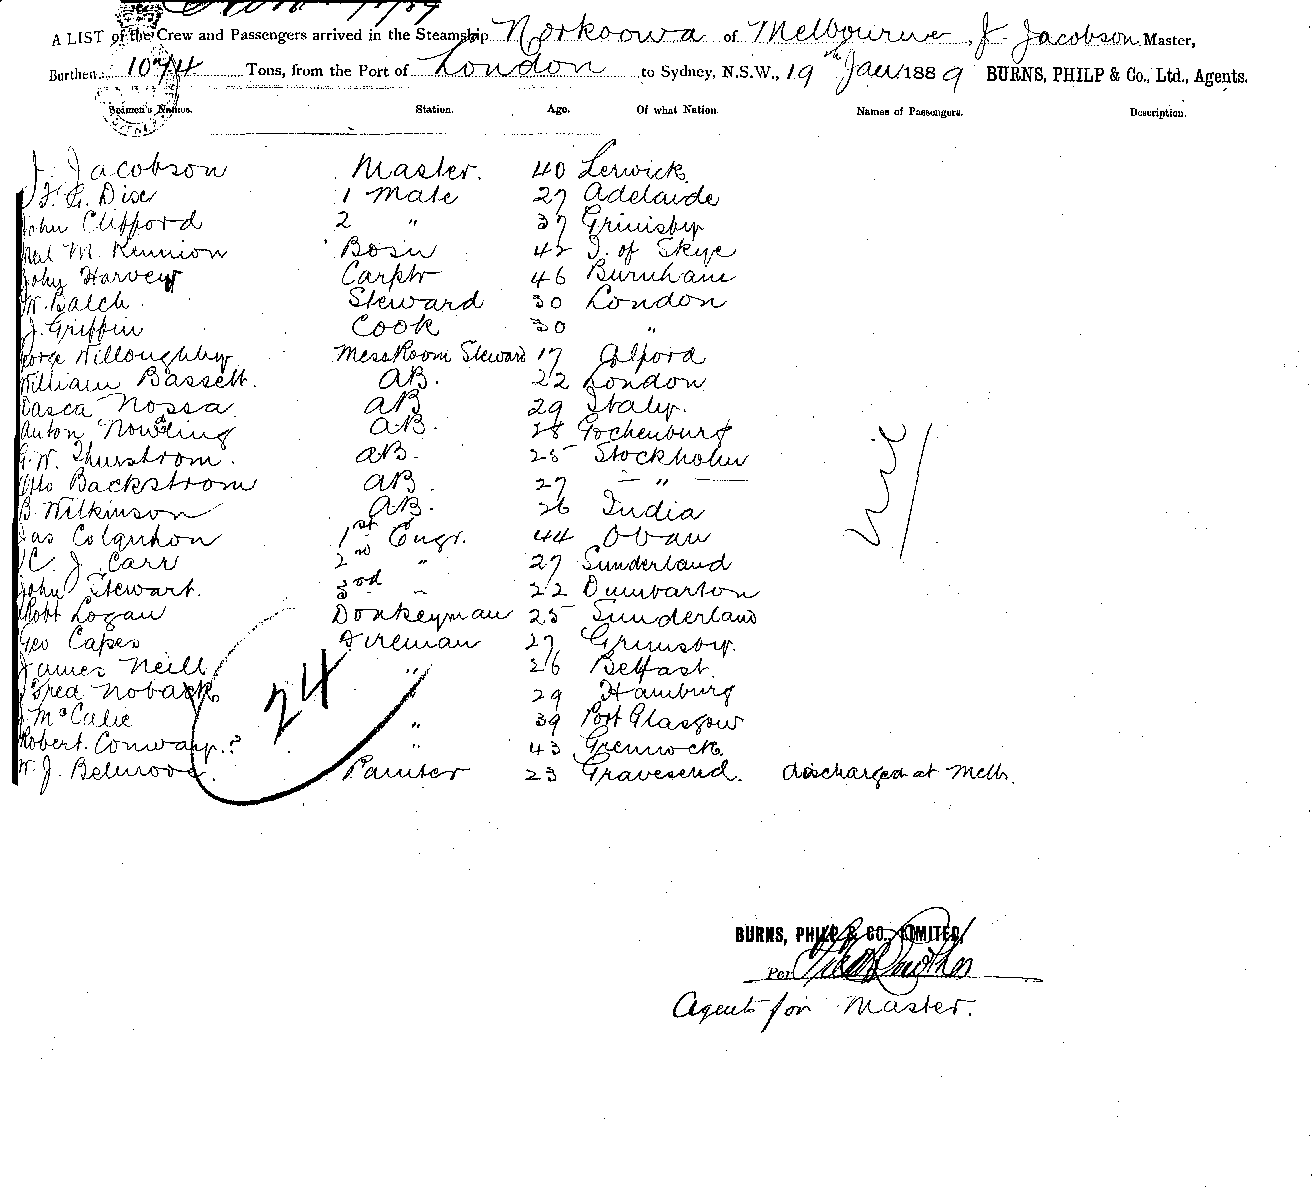 A LIST of the Crew and Passengers arrived in the Steamship Norkoowa of Melbourne, J. Jacobson Master,
Burthen 1074 Tons, from the Port of London to Sydney, N.S.W., 19th Jany 1889 BURNS, PHILP & Co., Ltd., Agents.
Seamen's Names. Station. Age. Of what Nation. Names of Passengers. Description.
J. Jacobson Master. 40 Lerwick
1 Mate 27 Adelaide
John Clifford 2 " 37 Grimsby
Bosn 42 I. of Skye
John Harvey Carptr 46 Burnham
W. Balch Steward 30 London
J. Griffin Cook 30 "
George Willoughby Mess Room Steward 17 Alford
William Bassett. AB. 22 London
Nossa AB 29 Italy.
Anton AB. 28 Gothenburg
G.W. Thurstrom. AB. 25 Stockholm
Otto Backstrom AB. 27 "
B. Wilkinson AB. 26 India
Jas Colquhon 1st Engr. 44 Oban
C. J. Carr 2nd " 27 Sunderland
John Stewart. 3rd " 22 Dumbarton
Robt Logan Donkeyman 25 Sunderland
Geo Capes Fireman 27 Grimsby.
James Neill " 26 Belfast.
Fred Noback " 29 Hamburg
J McCalie " 39 Port Glasgow
Robert Conway.? " 43 Greenock.
W. J. Painter 23 Gravesend. discharged at Melb.
24
Nil
BURNS, PHILP & CO., LIMITED,
Per
Agents for Master.